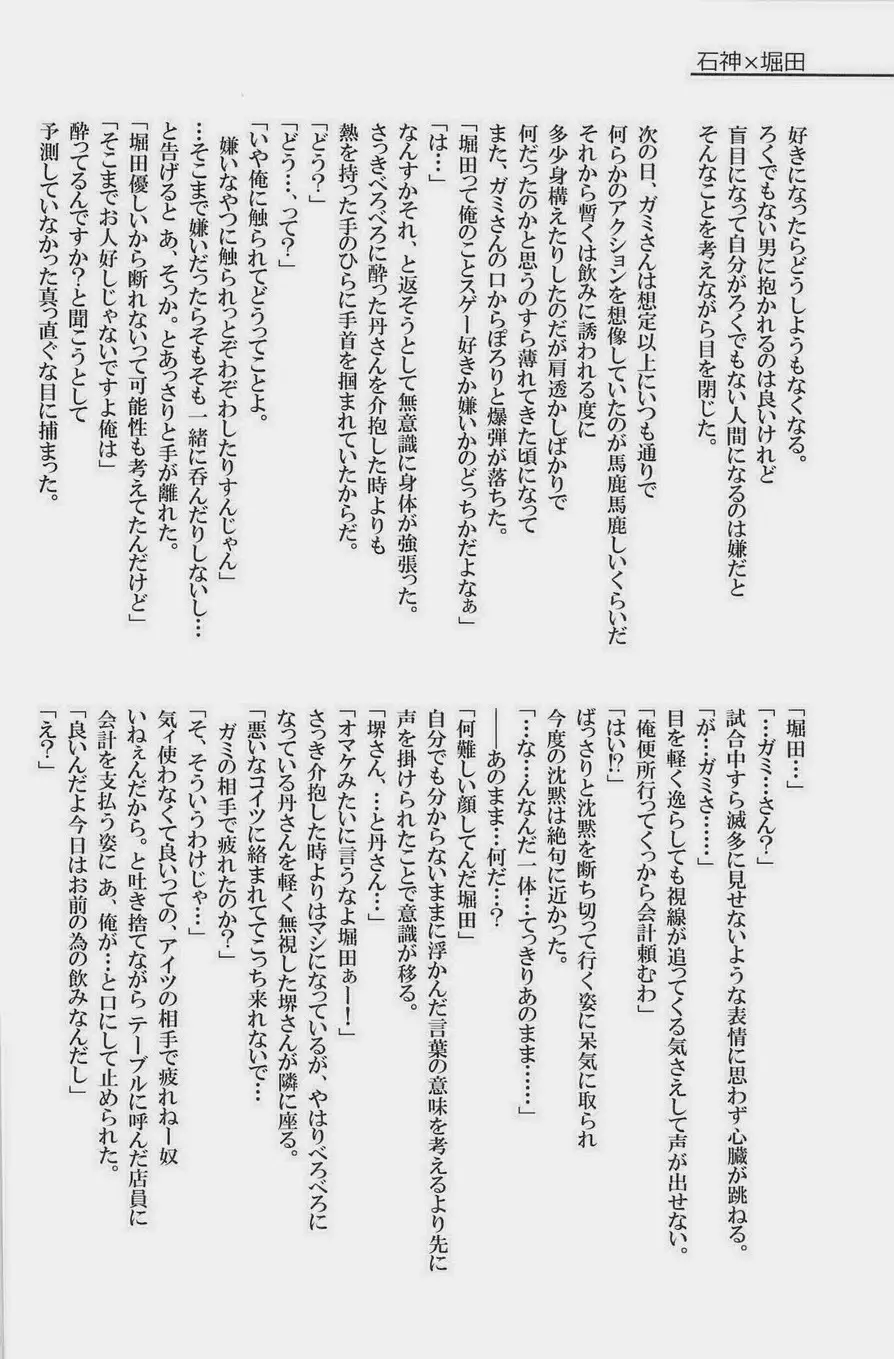 石神×堀田
好きになったらどうしようもなくなる。
ろくでもない男に抱かれるのは良いけれど
盲目になって自分がろくでもない人間になるのは嫌だと
そんなことを考えながら目を閉じた。
次の日、ガミさんは想定以上にいつも通りで
何らかのアクションを想像していたのが馬鹿馬鹿しいくらいだ
それから暫くは飲みに誘われる度に
多少身構えたりしたのだが肩透かしばかりで
何だったのかと思うのすら薄れてきた頃になって
また、ガミさんの口からぽろりと爆弾が落ちた。
「堀田って俺のことスゲー好きか嫌いかのどっちかだよなぁ」
「は…」
なんすかそれ、と返そうとして無意識に身体が強張った。
さっきべろべろに酔った丹さんを介抱した時よりも
熱を持った手のひらに手首を掴まれていたからだ。
「どう?」
「どう…、って?」
「いや俺に触られてどうってことよ。
嫌いなやつに触られっとぞわぞわしたりすんじゃん」
…そこまで嫌いだったらそもそも一緒に呑んだりしないし…
と告げると あ、そっか。とあっさりと手が離れた。
「堀田優しいから断れないって可能性も考えてたんだけど」
「そこまでお人好しじゃないですよ俺は」
酔ってるんですか?と聞こうとして
予測していなかった真っ直ぐな目に捕まった。
「堀田…」
「…ガミ…さん?」
試合中すら滅多に見せないような表情に思わず心臓が跳ねる。
「が…ガミさ……」
目を軽く逸らしても視線が追ってくる気さえして声が出せない。
「俺便所行ってくっから会計頼むわ」
「はい!?」
ばっさりと沈黙を断ち切って行く姿に呆気に取られ
今度の沈黙は絶句に近かった。
「…な…んなんだ一体…てっきりあのまま……」
――あのまま…何だ…?
「何難しい顔してんだ堀田」
自分でも分からないままに浮かんだ言葉の意味を考えるより先に
声を掛けられたことで意識が移る。
「堺さん、…と丹さん…」
「オマケみたいに言うなよ堀田ぁー!」
さっき介抱した時よりはマシになっているが、やはりべろべろに
なっている丹さんを軽く無視した堺さんが隣に座る。
「悪いなコイツに絡まれててこっち来れないで…
ガミの相手で疲れたのか?」
「そ、そういうわけじゃ…」
気ィ使わなくて良いっての、アイツの相手で疲れねー奴
いねぇんだから。と吐き捨てながら テーブルに呼んだ店員に
会計を支払う姿に あ、俺が…と口にして止められた。
「良いんだよ今日はお前の為の飲みなんだし」
「え?」